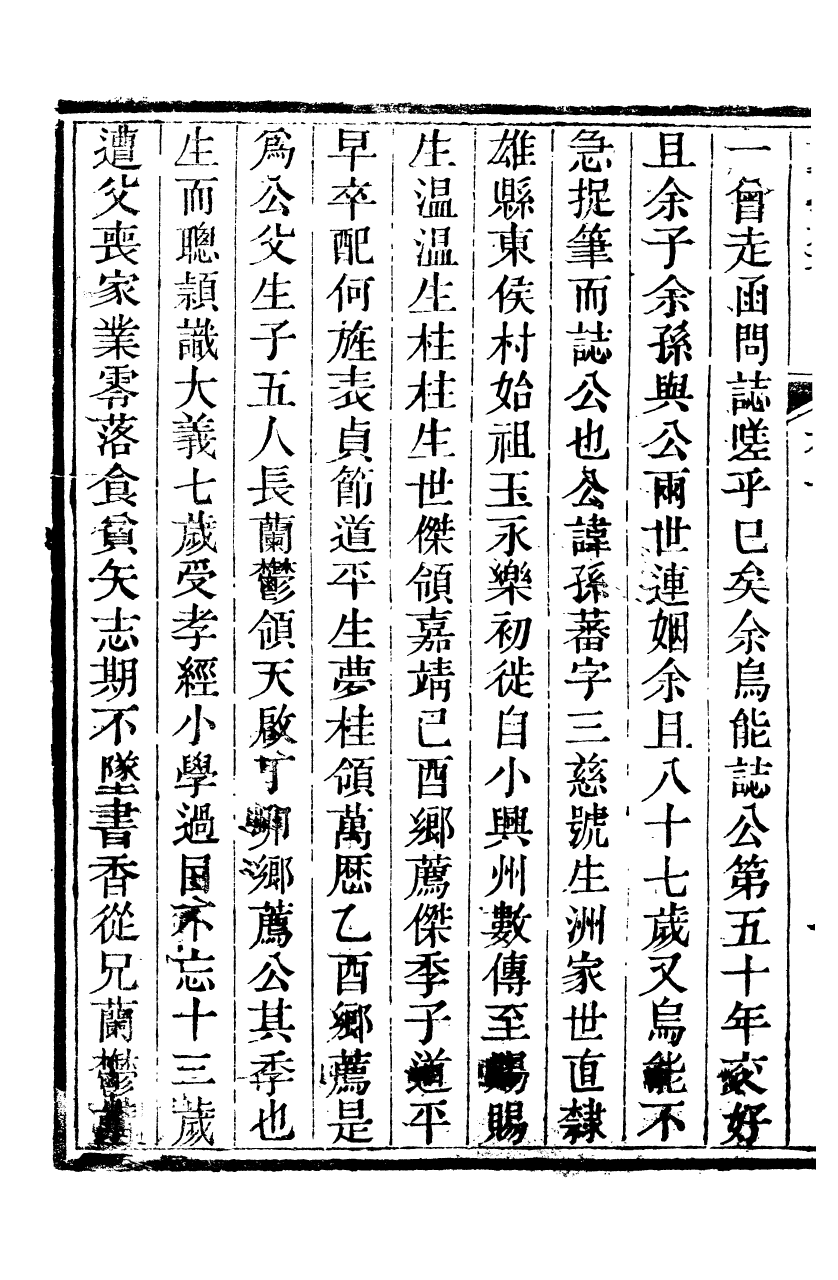 一曾走函問誌嗟乎已矣余烏能誌公第五十年交好
且余子余孫與公兩世連姻余且八十七歲又烏能不
急捉筆而誌公也公諱孫蕃字三慈號生洲家世直隸
雄縣東侯村始祖玉永樂初徙自小興州數傳至賜賜
生温温生柱柱生世傑領嘉靖己酉鄉薦傑季子道平
早卒配何旌表貞節道平生夢桂領萬歷乙酉鄉薦是
爲公父生子五人長蘭鬱領天啟丁卯鄉薦公其季也
生而聰頴識大義七歲受孝經小學過目不忘十三歲
遭父喪家業零落食貧矢志期不墜書香從兄蘭鬱